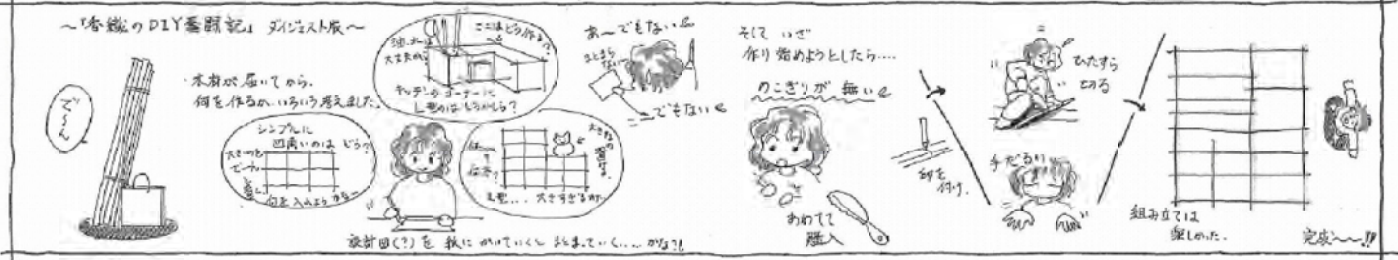 ～「香織のDIY奮闘記」ダイジェスト版～
で〜ん
・木材が届いてから、
何を作るか、いろいろ考えました。
シンプルに
四角いのは どう？
何を入れようかな〜
ここはどう作る？
大丈夫かな
キッチンのコーナーに
L型のはどうかしら？
L型... 大きすぎるか〜
設計図(?)を 紙に かいていくと まとまっていく.....かな?!
あ〜でもない
まとまら
ない〜
でもない
そして いざ
作り始めようとしたら....
のこぎりが 無い
あわてて
購入
印を
付け、
ひたすら
切る
手だるい
組み立ては
楽しかった。
完成〜〜!!